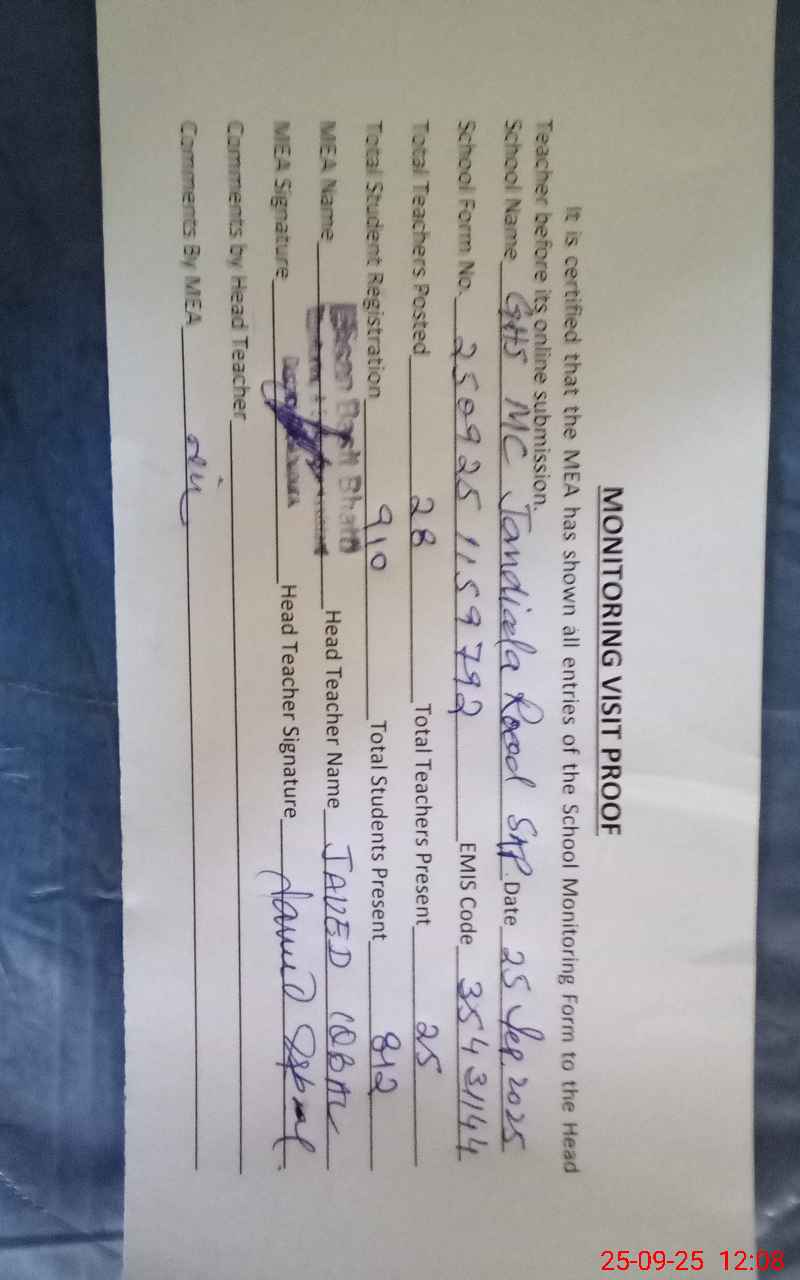 MONITORING VISIT PROOF
It is certified that the MEA has shown all entries of the School Monitoring Form to the Head
Teacher before its online submission.
School Name GHS MC Jandiala Road SKP. Date 25 Sep. 2025
School Form No. 2509251159792 EMIS Code 35431144
Total Teachers Posted 28 Total Teachers Present 25
Total Student Registration 910 Total Students Present 812
MEA Name Bhatti Head Teacher Name JAVED IQBAL
MEA Signature Head Teacher Signature Javed Iqbal
Comments by Head Teacher
Comments By MEA
25-09-25 12:08